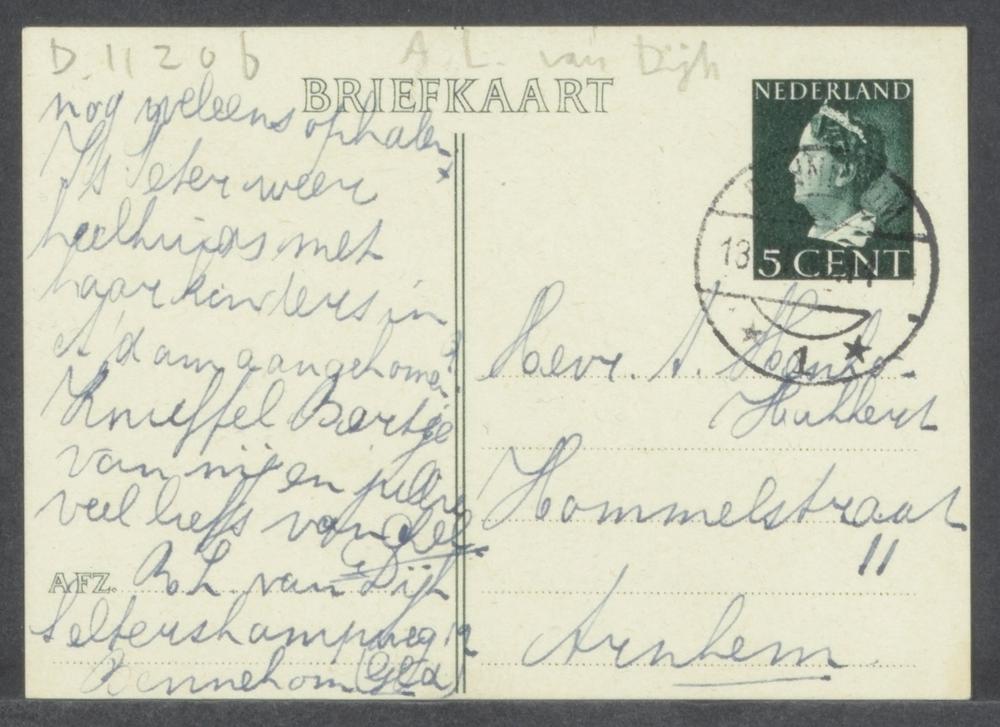 D 11206
A. L. van Dijk
BRIEFKAART
nog weleens ophalen
Is Peter weer
heelhuids met
haar kinders in
A'dam aangekomen?
Knuffel Bartje
van mij en jullie
veel liefs van
AFZ. A. L. van Dijk
Selterskampweg 12
Bennekom (Gld)
NEDERLAND
5 CENT
13
1
Mevr. A.
Hommelstraat
11
Arnhem